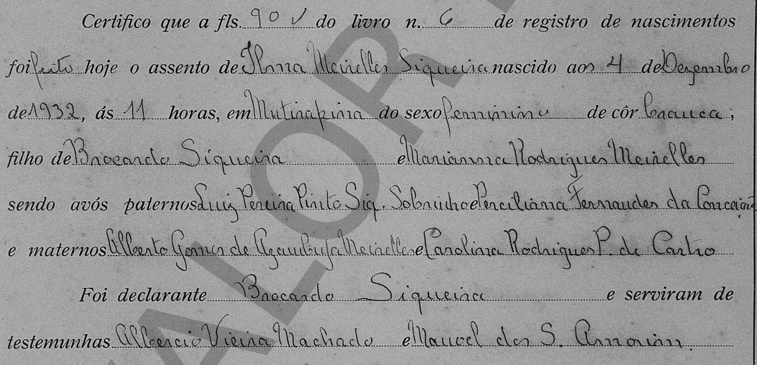 Certifico que a fls. 90 v do livro n. 6 de registro de nascimentos
foi feito hoje o assento de Ilma Meirelles Siqueira nascido aos 4 de Dezembro
de 1932, ás 11 horas, em do sexo feminino de côr branca,
filho de Brocardo Siqueira e Marianna Rodrigues Meirelles
sendo avós paternos Luiz Pereira Pinto Siq. Sobrinho e Perciliana Fernandes da Conceição
e maternos Alberto Gomes de Azambuja Meirelles e Carolina Rodrigues P. de Castro
Foi declarante Brocardo Siqueira e serviram de
testemunhas Vieira Machado e Manoel dos S. Amorim.
VALOR